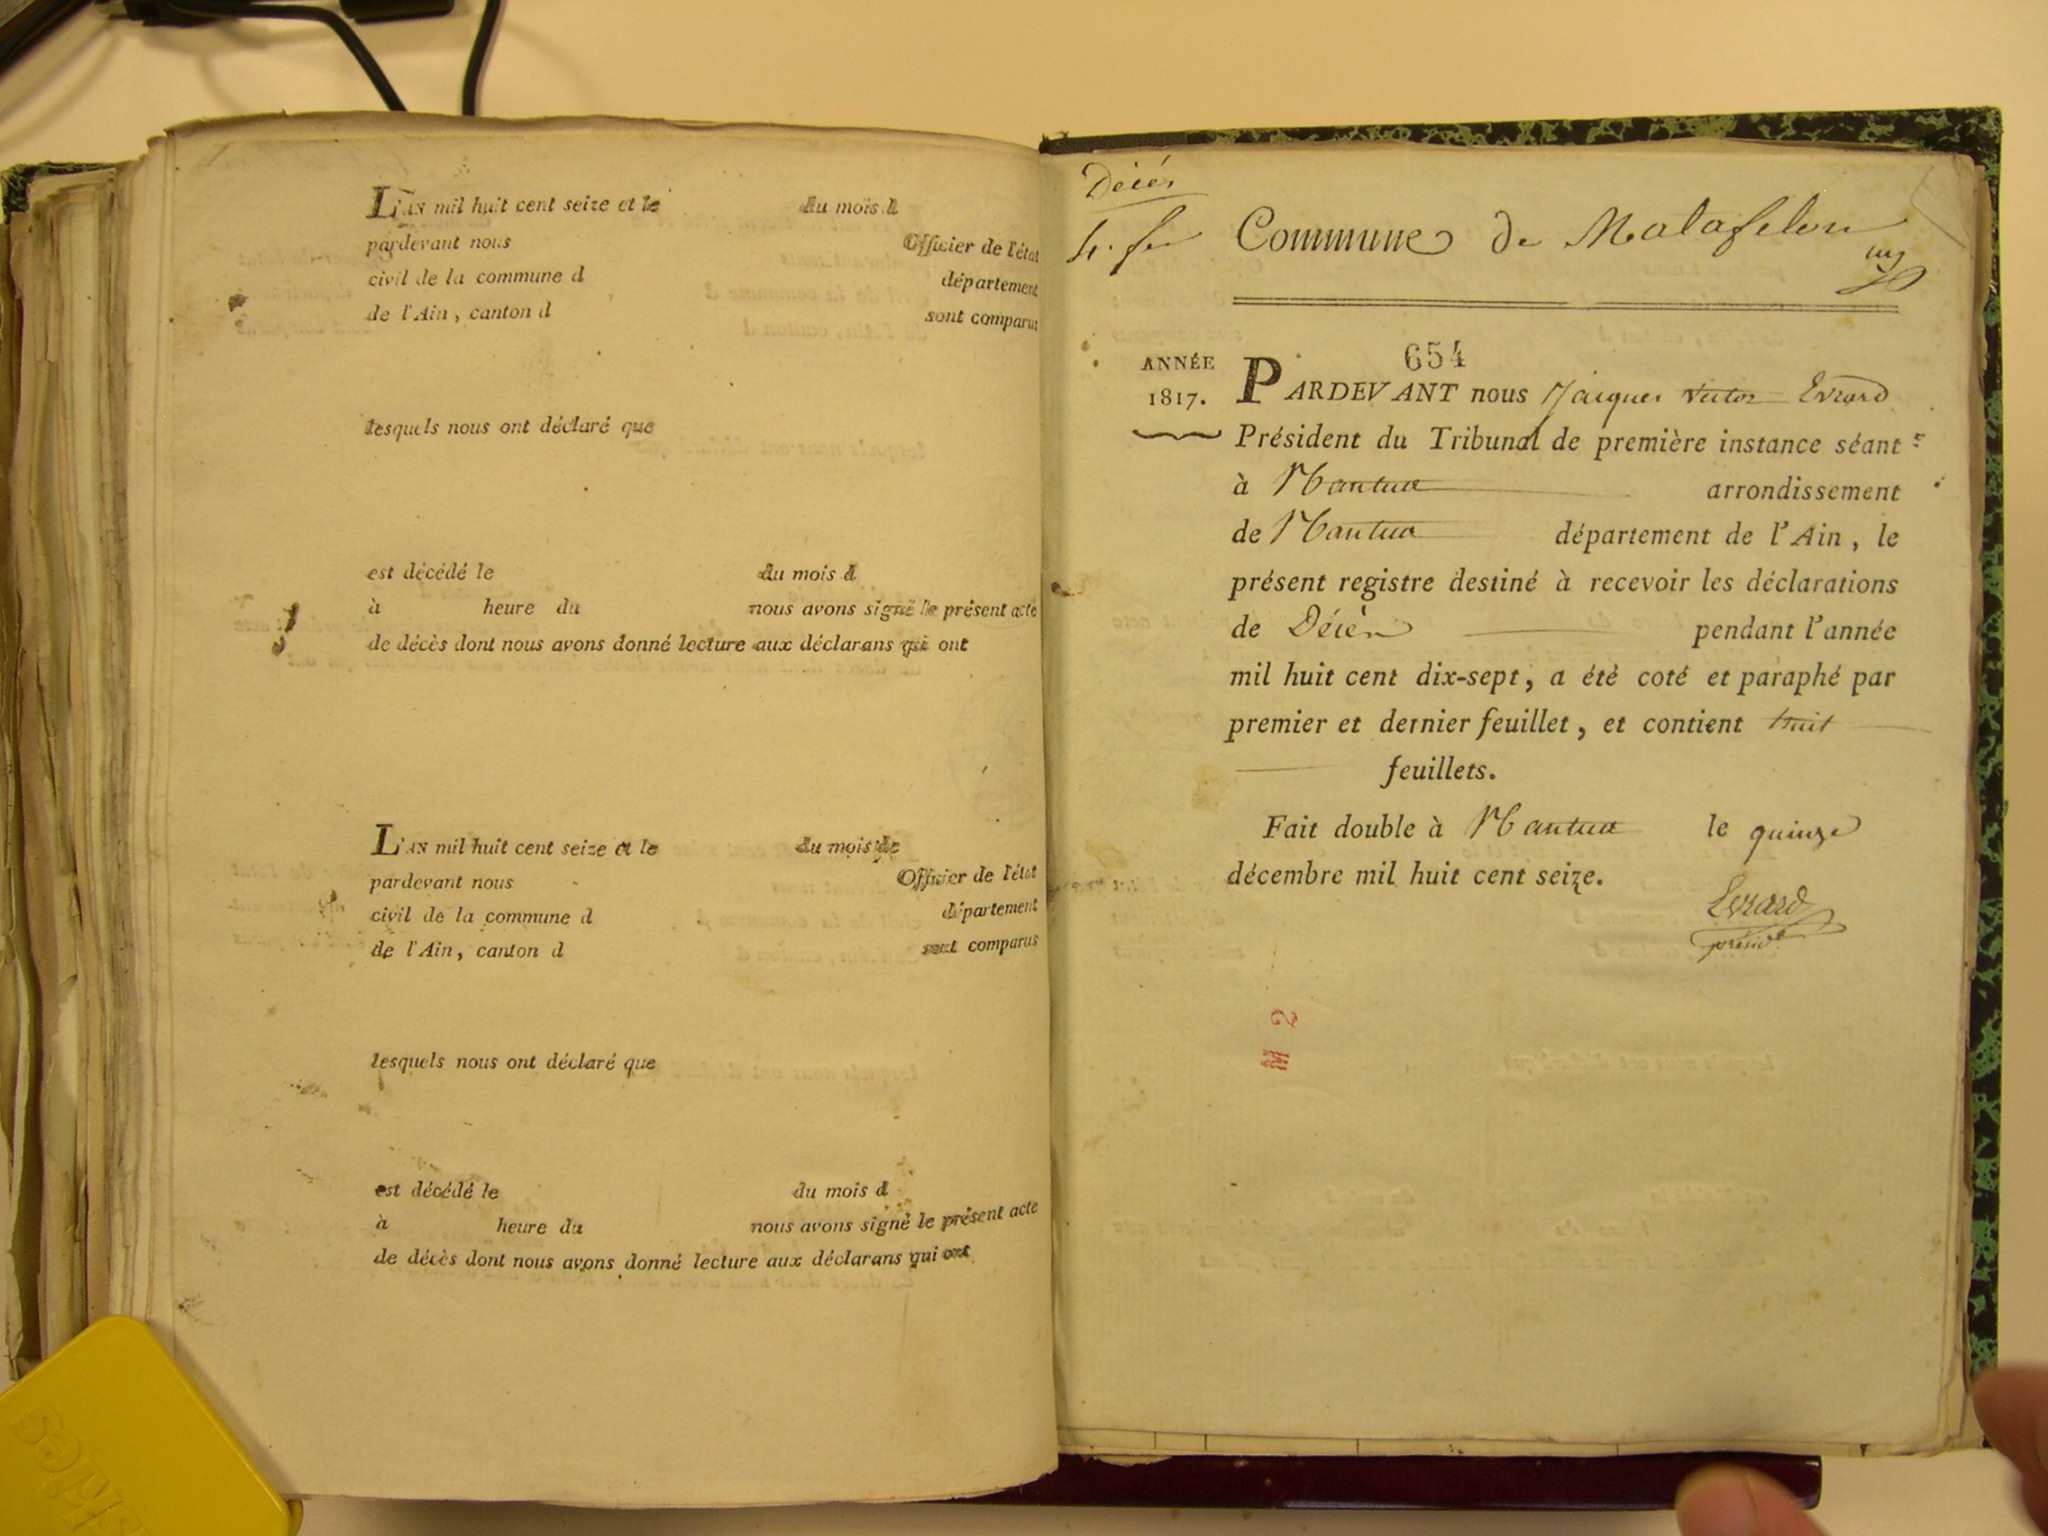 L'AN mil huit cent seize et le du mois d
pardevant nous Officier de l'état
civil de la commune d département
de l'Ain, canton d sont comparus
lesquels nous ont déclaré que
est décédé le du mois d
à heure du nous avons signé le présent acte
de décès dont nous avons donné lecture aux déclarans qui ont
L'AN mil huit cent seize et le du mois de
pardevant nous Officier de l'état
civil de la commune d département
de l'Ain, canton d sont comparus
lesquels nous ont déclaré que
est décédé le du mois d
à heure du nous avons signé le présent acte
de décès dont nous avons donné lecture aux déclarans qui ont
Décés
4. f
Commune de Matafelon
654
ANNÉE
1817.
PARDEVANT nous Jacques Victor Evrard
Président du Tribunal de première instance séant
à Nantua arrondissement
de Nantua département de l'Ain, le
présent registre destiné à recevoir les déclarations
de Décès pendant l'année
mil huit cent dix-sept, a été coté et paraphé par
premier et dernier feuillet, et contient huit
feuillets.
Fait double à Nantua le quinze
décembre mil huit cent seize.
Evrard
présid.t
M 2